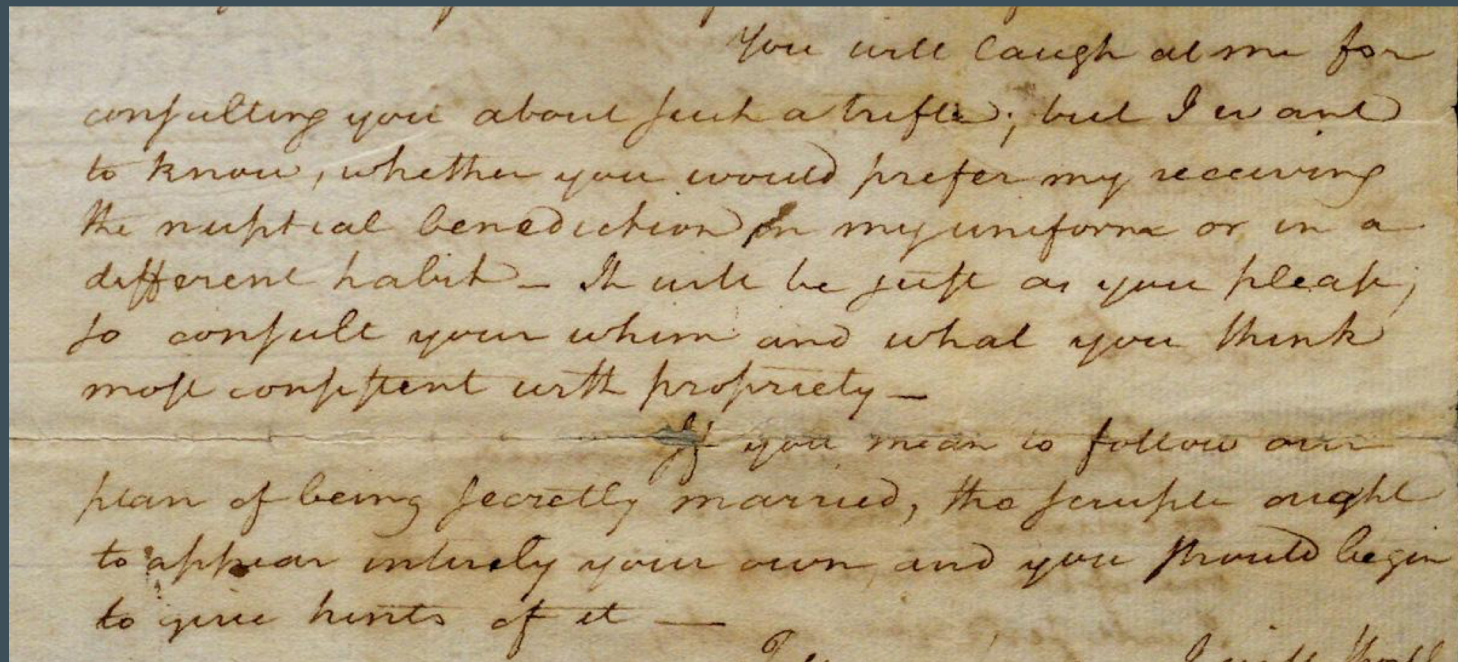 You will laugh at me for
consulting you about such a trifle; but I want
to know, whether you would prefer my receiving
the nuptial benediction in my uniform or in a
different habit — It will be just as you please;
so consult your whim and what you think
most consistent with propriety —
If you mean to follow our
plan of being secretly married, the scruple ought
to appear intirely your own and you should begin
to give hints of it —